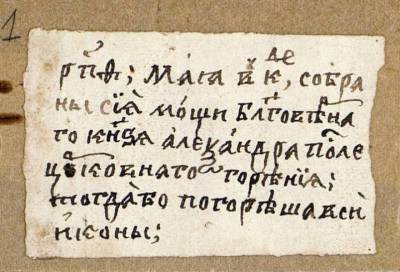 1
рп҃ѳ; Маїа в к҃, де, собра
ны сїѧ мощи бл҃говѣрна
го кн҃зѧ алеѯандра после
ц҃рковнаго згорѣнїѧ;
тогда бо погорѣша вси
иконы;